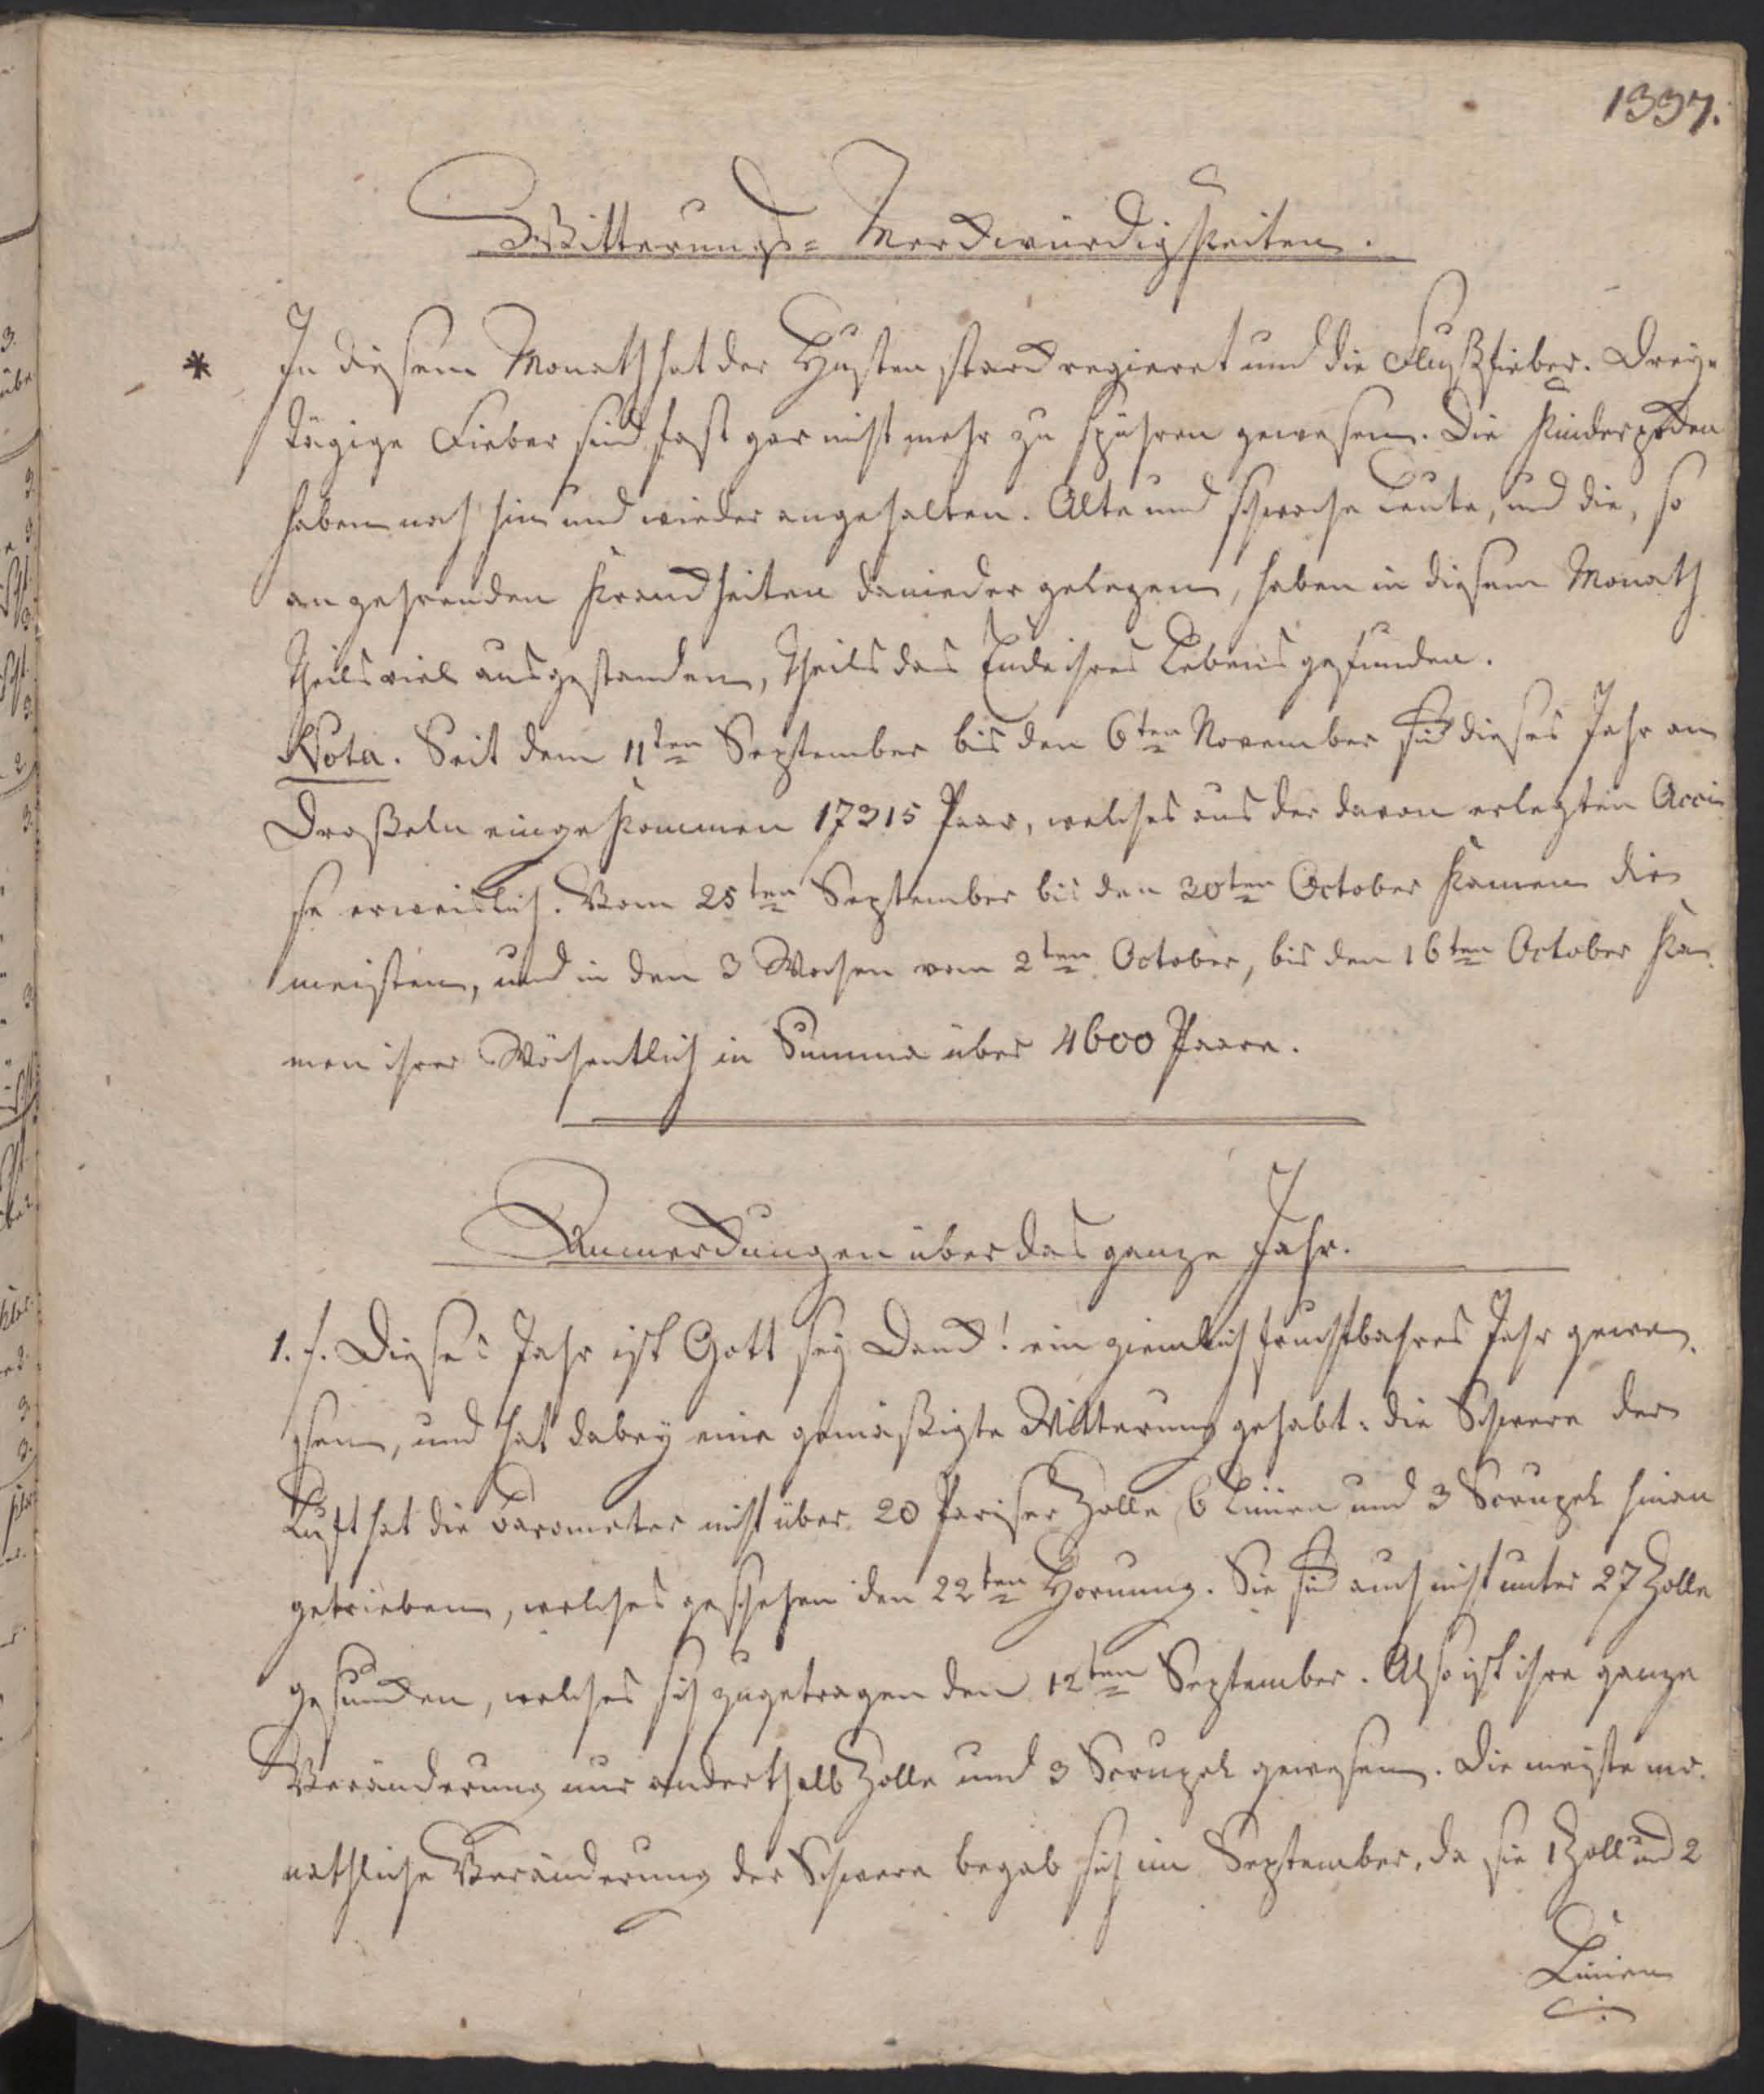 1337.
Witterungs= Merckwürdigkeiten.
* In diesem Monath hat der Husten starck regieret und die Flußfieber. Drey=
tägige Fieber sind fast gar nicht mehr zu spühren gewesen. Die Kinderpocken
haben noch hin und wieder angehalten. Alte und schwache Leute, und die, so
an zehrenden Kranckheiten danieder gelegen, haben in diesem Monath
theils viel ausgestanden, theils das Ende ihres Lebens gefunden.
Nota. Seit dem 11ten September bis den 6ten November sind dieses Jahr an
Droßeln eingekommen 17315 Paar, welches aus der davon erlegten Acci¬
se erweislich. Vom 25ten September bis den 30ten October kamen die
meisten, und in den 3 Wochen vom 2ten October, bis den 16ten October ka¬
men ihrer Wöchentlich in Summa über 4600 Paare.
Anmerckungen über das ganze Jahr.
1. /. Dieses Jahr ist Gott sey Danck! ein ziemlich fruchtbahres Jahr gewe¬
sen, und hat dabey eine gemäßigte Witterung gehabt: die Schwere der
Luft hat die Barometer nicht über 28 Pariser Zolle 6 Linien und 3 Scrupel hinan
getrieben, welches geschehen den 22ten Hornung. Sie sind auch nicht unter 27 Zolle
gesuncken, welches sich zugetragen den 12ten September. Also ist ihre ganze
Veränderung nur anderthalb Zolle und 3 Scrupel gewesen. Die meiste mo¬
nathliche Veränderung der Schwere begab sich im September, da sie 1 Zoll und 2
Linien